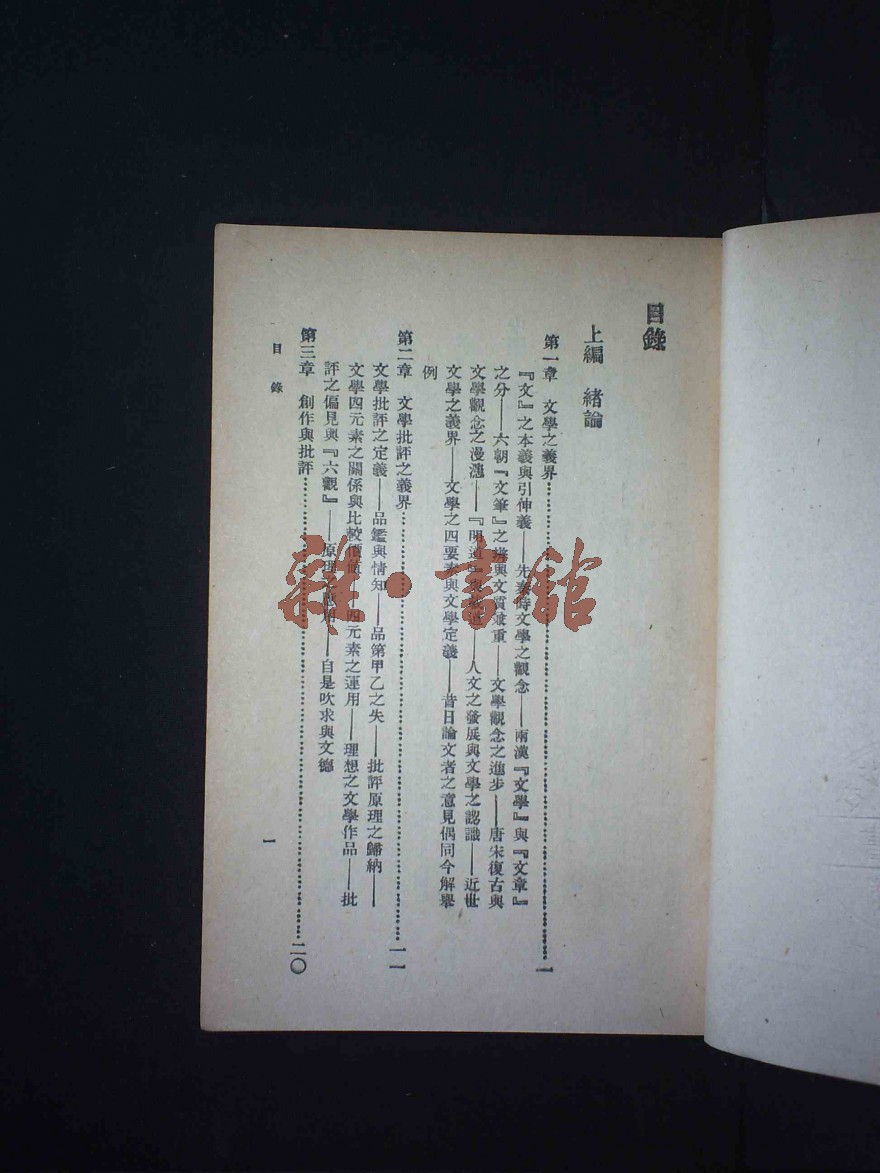 目錄
上編　緒論
第一章　文學之義界……一
『文』之本義與引伸義——先秦時文學之觀念——兩漢『文學』與『文章』
之分——六朝『文筆』之辨與文質兼重——文學觀念之進步——唐宋復古與
文學觀念之漫漶——『明道』與載道——人文之發展與文學之認識——近世
文學之義界——文學之四要素與文學定義——昔日論文者之意見偶同今解舉
例
第二章　文學批評之義界……一一
文學批評之定義——品鑑與情知——品第甲乙之失——批評原理之歸納——
文學四元素之關係與比較價值——四元素之運用——理想之文學作品——批
評之偏見與『六觀』——原理之應用——自是吹求與文德
第三章　創作與批評……二〇
目錄
一
雜·書館